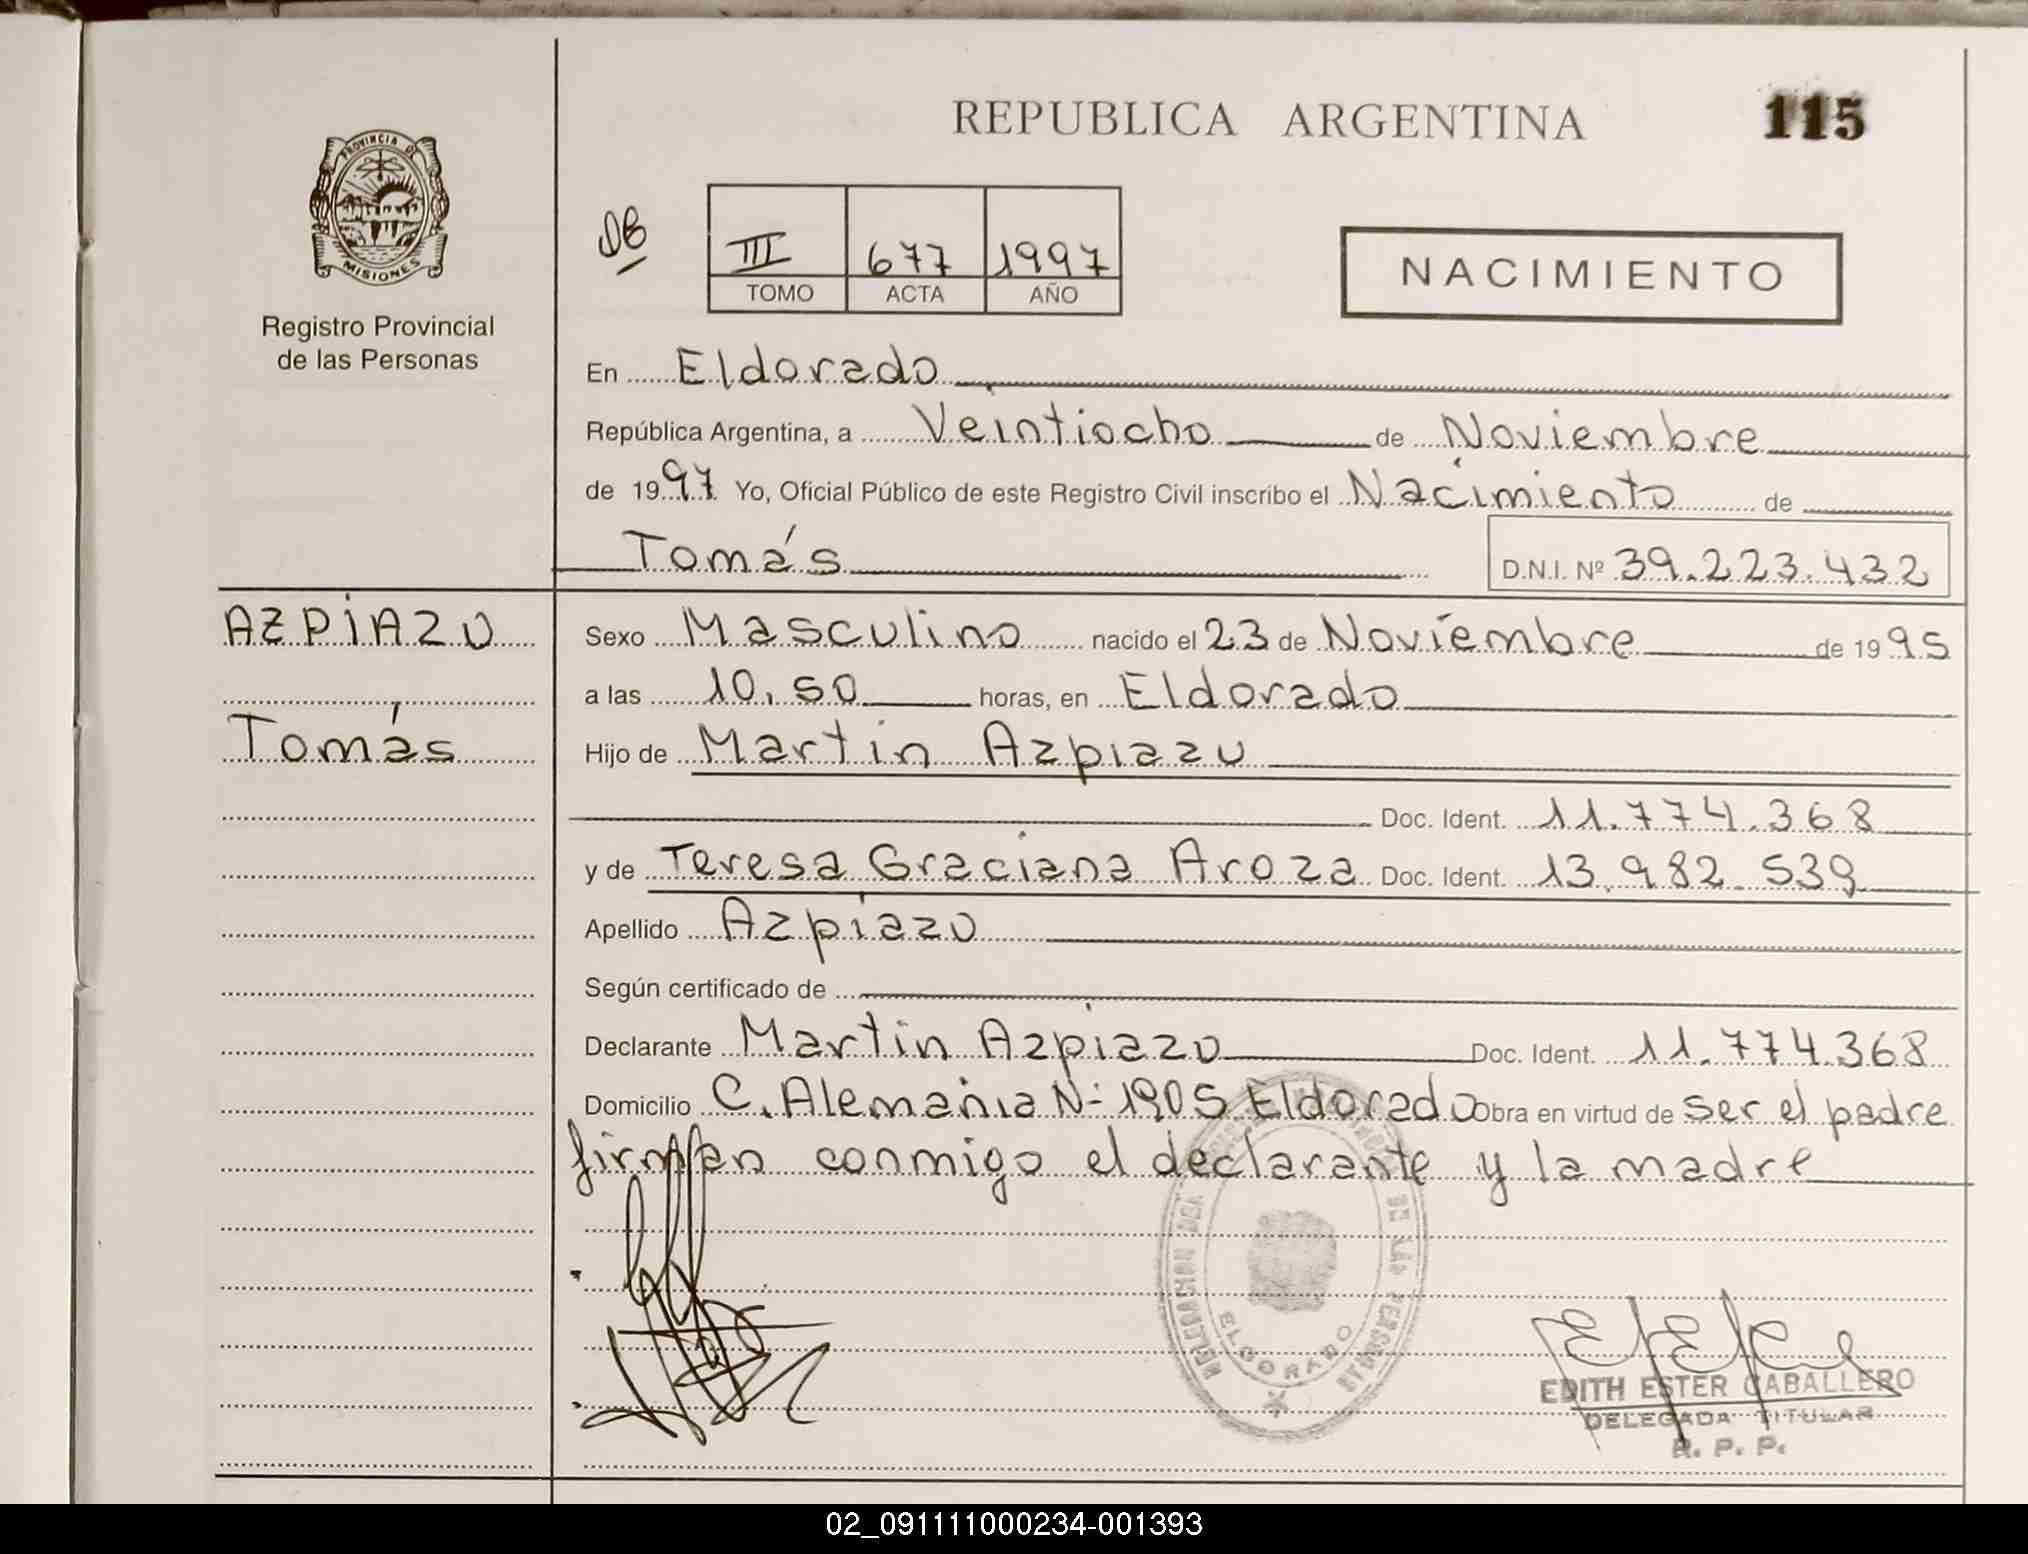 REPUBLICA ARGENTINA
115
PROVINCIA DE
MISIONES
Registro Provincial
de las Personas
III 677 1997
TOMO ACTA AÑO
NACIMIENTO
En Eldorado
República Argentina, a Veintiocho de Noviembre
de 1997 Yo, Oficial Público de este Registro Civil inscribo el Nacimiento de
Tomás D.N.I. Nº 39.223.432
AZPIAZU
Tomás
Sexo Masculino nacido el 23 de Noviembre de 1995
a las 10,50 horas, en Eldorado
Hijo de Martin Azpiazu
Doc. Ident. 11.774.368
y de Teresa Graciana Aroza Doc. Ident. 13.982.539
Apellido Azpiazu
Según certificado de
Declarante Martin Azpiazu Doc. Ident. 11.774.368
Domicilio C. Alemania Nº 1905 Eldorado Obra en virtud de ser el padre
firman conmigo el declarante y la madre
DE LAS PERSONAS
ELDORADO
EDITH ESTER CABALLERO
DELEGADA TITULAR
R. P. P.
02_091111000234-001393